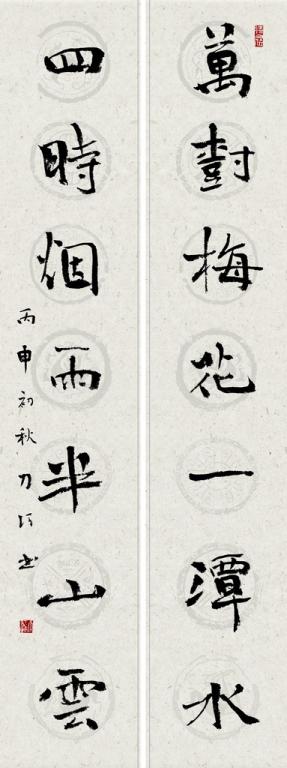 萬樹梅花一潭水
四時烟雨半山雲
丙申初秋刀书